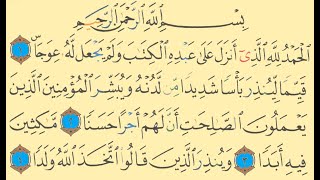 بِسْمِ اللَّهِ الرَّحْمَٰنِ الرَّحِيمِ
الْحَمْدُ لِلَّهِ الَّذِي أَنزَلَ عَلَىٰ عَبْدِهِ الْكِتَٰبَ وَلَمْ يَجْعَل لَّهُ عِوَجًا ١
قَيِّمًا لِّيُنذِرَ بَأْسًا شَدِيدًا مِّن لَّدُنْهُ وَيُبَشِّرَ الْمُؤْمِنِينَ الَّذِينَ
يَعْمَلُونَ الصَّٰلِحَٰتِ أَنَّ لَهُمْ أَجْرًا حَسَنًا ٢ مَّٰكِثِينَ
فِيهِ أَبَدًا ٣ وَيُنذِرَ الَّذِينَ قَالُوا اتَّخَذَ اللَّهُ وَلَدًا ٤